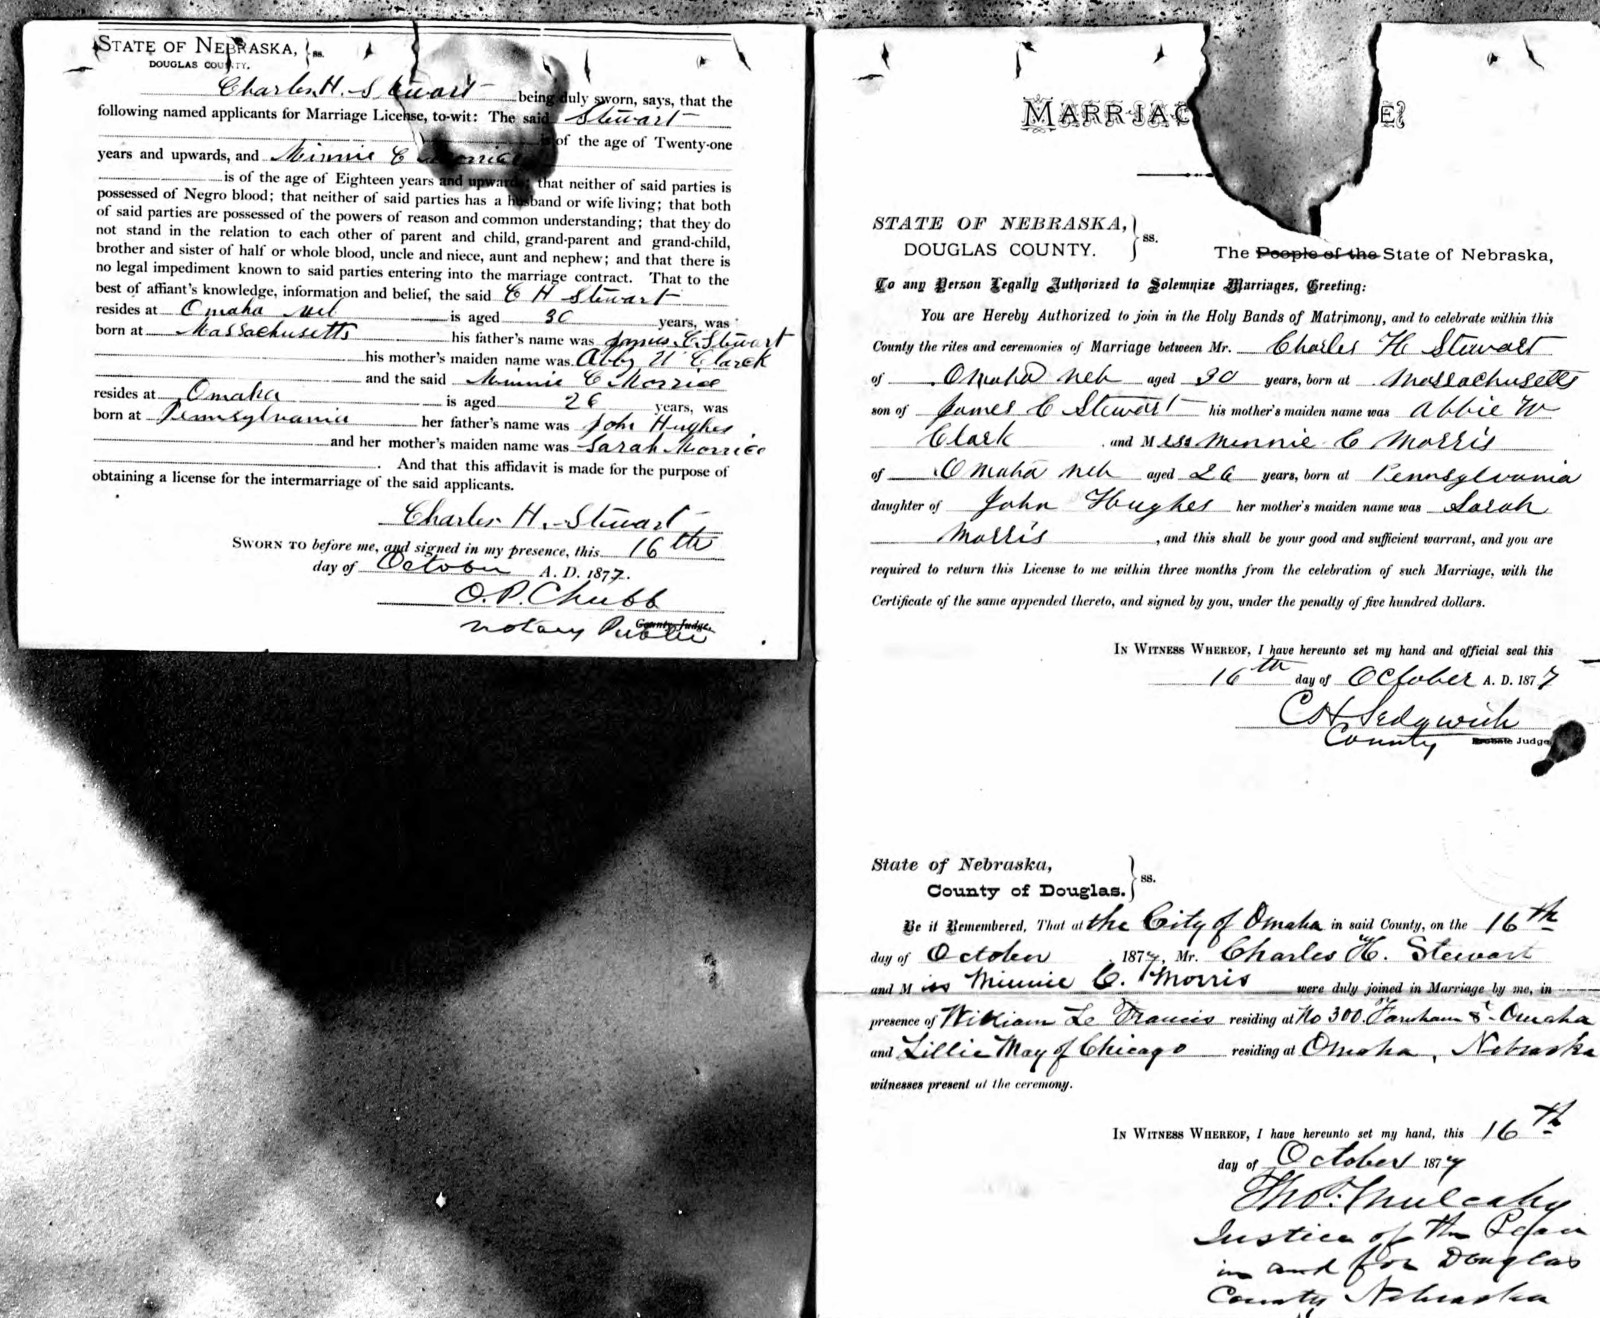 STATE OF NEBRASKA, } ss.
DOUGLAS COUNTY.
Charles H. Stewart being duly sworn, says, that the
following named applicants for Marriage License, to-wit: The said Stewart
is of the age of Twenty-one
years and upwards, and Minnie C Morris
is of the age of Eighteen years and upwards; that neither of said parties is
possessed of Negro blood; that neither of said parties has a husband or wife living; that both
of said parties are possessed of the powers of reason and common understanding; that they do
not stand in the relation to each other of parent and child, grand-parent and grand-child,
brother and sister of half or whole blood, uncle and niece, aunt and nephew; and that there is
no legal impediment known to said parties entering into the marriage contract. That to the
best of affiant's knowledge, information and belief, the said C H Stewart
resides at Omaha Neb is aged 30 years, was
born at Massachusetts his father's name was James C Stewart
his mother's maiden name was Abby W Clark
and the said Minnie C Morris
resides at Omaha is aged 26 years, was
born at Pennsylvania her father's name was John Hughes
and her mother's maiden name was Sarah Morris
And that this affidavit is made for the purpose of
obtaining a license for the intermarriage of the said applicants.
Charles H. Stewart
SWORN TO before me, and signed in my presence, this 16th
day of October A. D. 1877.
O. P. Chubb
County Judge.
Notary Public
MARRIAG E
STATE OF NEBRASKA, } ss.
DOUGLAS COUNTY.
The People of the State of Nebraska,
To any Person Legally Authorized to Solemnize Marriages, Greeting:
You are Hereby Authorized to join in the Holy Bands of Matrimony, and to celebrate within this
County the rites and ceremonies of Marriage between Mr. Charles H Stewart
of Omaha Neb aged 30 years, born at Massachusetts
son of James C Stewart his mother's maiden name was Abbie W
Clark and Miss Minnie C Morris
of Omaha Neb aged 26 years, born at Pennsylvania
daughter of John Hughes her mother's maiden name was Sarah
Morris, and this shall be your good and sufficient warrant, and you are
required to return this License to me within three months from the celebration of such Marriage, with the
Certificate of the same appended thereto, and signed by you, under the penalty of five hundred dollars.
IN WITNESS WHEREOF, I have hereunto set my hand and official seal this
16th day of October A. D. 1877
C H Sedgwick
County Probate Judge
State of Nebraska, } ss.
County of Douglas.
Be it Remembered, That at the City of Omaha in said County, on the 16th
day of October 1877, Mr. Charles H. Stewart
and Miss Minnie C. Morris were duly joined in Marriage by me, in
presence of William Le Francis residing at No 300. Farnham St. Omaha
and Lillie May of Chicago residing at Omaha, Nebraska
witnesses present at the ceremony.
IN WITNESS WHEREOF, I have hereunto set my hand, this 16th
day of October 1877
Thos. Mulcahy
Justice of the Peace
in and for Douglas
County Nebraska